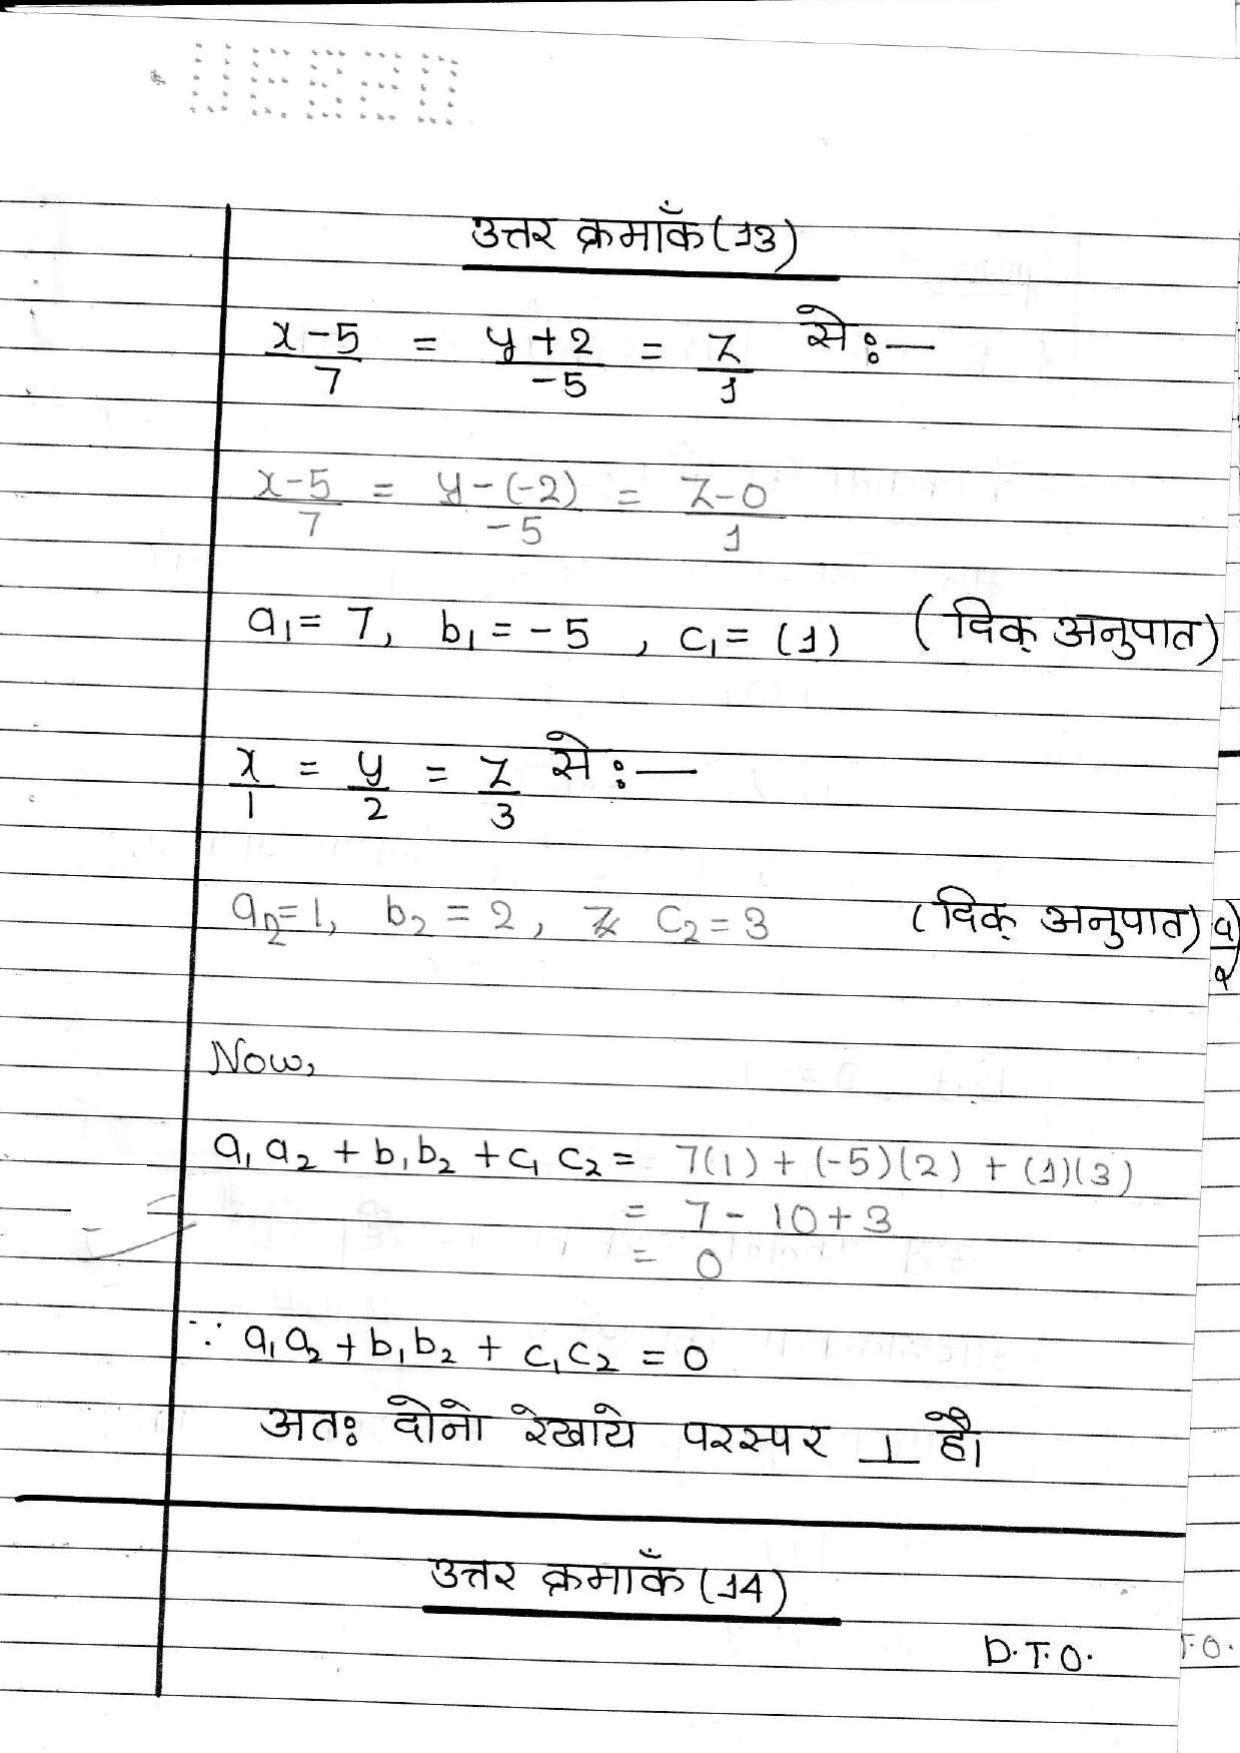 UBSED
उत्तर क्रमाँक (13)
x-5/7 = y+2/-5 = z/1 से :—
x-5/7 = y-(-2)/-5 = z-0/1
a₁ = 7, b₁ = -5 , c₁ = (1) ( दिक् अनुपात)
x/1 = y/2 = z/3 से :—
a₂=1, b₂ = 2, c₂ = 3 ( दिक् अनुपात)
Now,
a₁ a₂ + b₁b₂ + c₁ c₂ = 7(1) + (-5)(2) + (1)(3)
= 7 - 10 + 3
= 0
∵ a₁a₂ + b₁b₂ + c₁c₂ = 0
अतः दोनो रेखाये परस्पर ⊥ है।
उत्तर क्रमाँक (14)
P.T.O.
T.O.